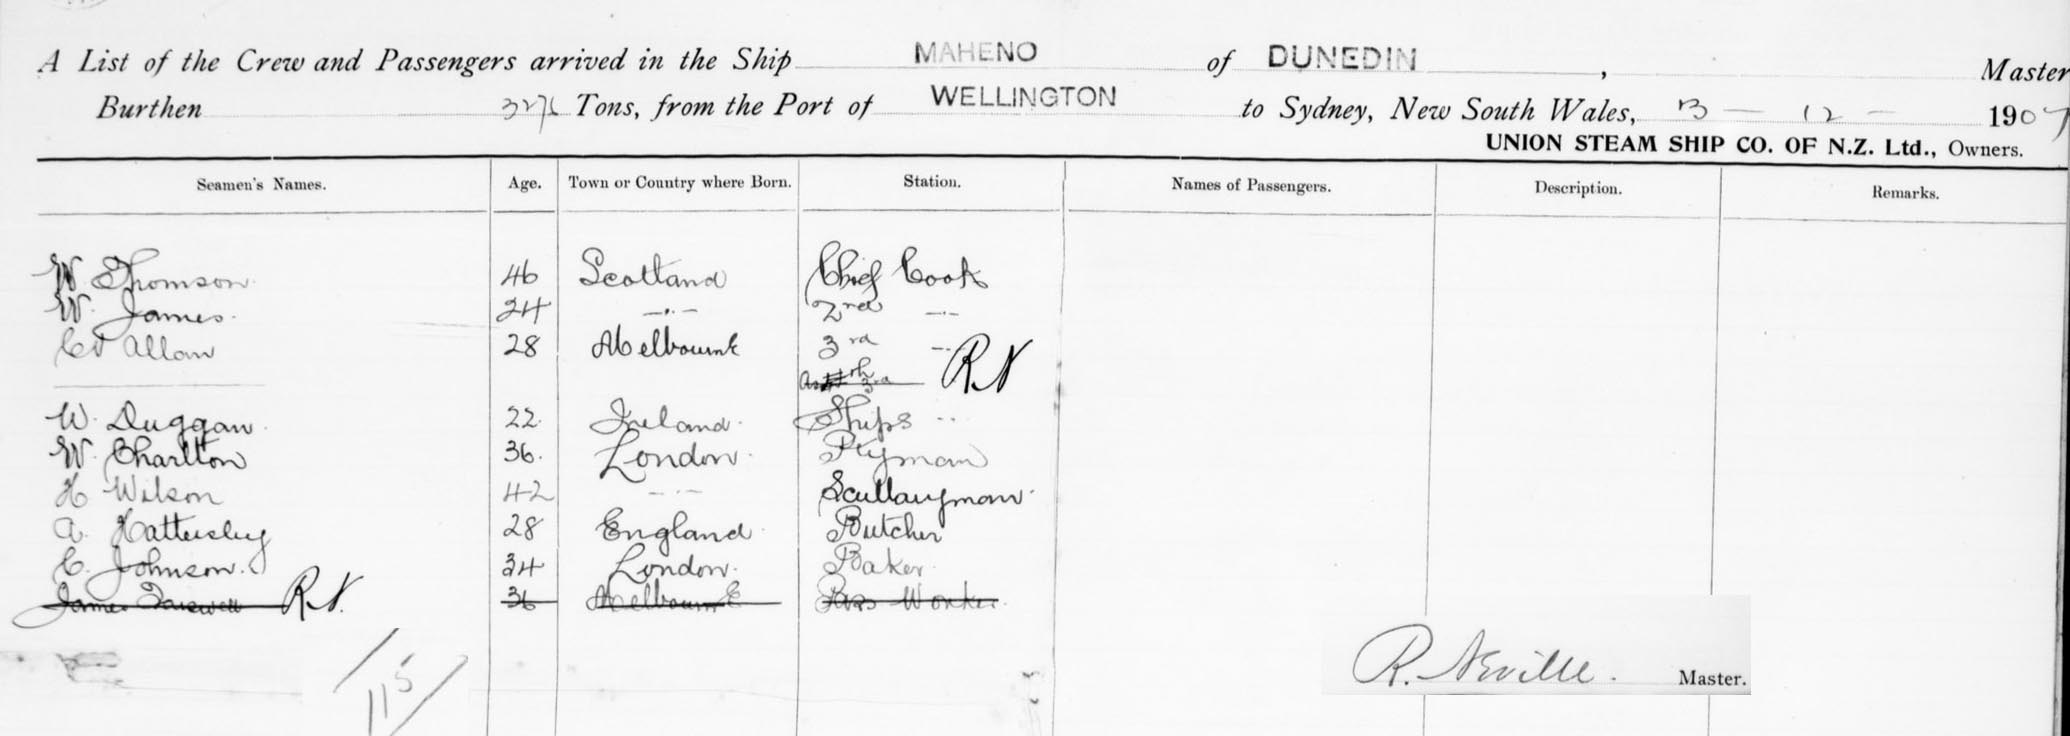 A List of the Crew and Passengers arrived in the Ship MAHENO of DUNEDIN , Master
Burthen 3276 Tons, from the Port of WELLINGTON to Sydney, New South Wales, 13 – 12 – 1907
UNION STEAM SHIP CO. OF N.Z. Ltd., Owners.
Seamen's Names. Age. Town or Country where Born. Station. Names of Passengers. Description. Remarks.
W. Thomson 46 Scotland Chief Cook
W. James 24 –"– 2nd –"–
C Allan 28 Melbourne 3rd –"–
3rd RN
W. Duggan 22 Ireland Ships "
W. Charlton 36. London Ptyman
H Wilson 42 –"– Scullaryman
A. Hattersley 28 England Butcher
C. Johnson. 34 London. Baker
James RN. 36 Melbourne Pass Worker.
115
R. Neville. Master.